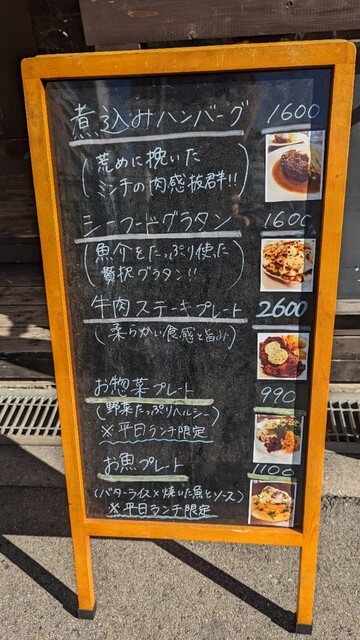 煮込みハンバーグ 1600
(荒めに挽いた
ミンチの肉感抜群!!)
シーフードグラタン 1600
(魚介をたっぷり使った
贅沢グラタン!!)
牛肉ステーキプレート 2600
(柔らかい食感と旨み)
お惣菜プレート 990
(野菜たっぷりヘルシー)
※平日ランチ限定
お魚プレート 1100
(バターライス×焼いた魚とソース)
※平日ランチ限定